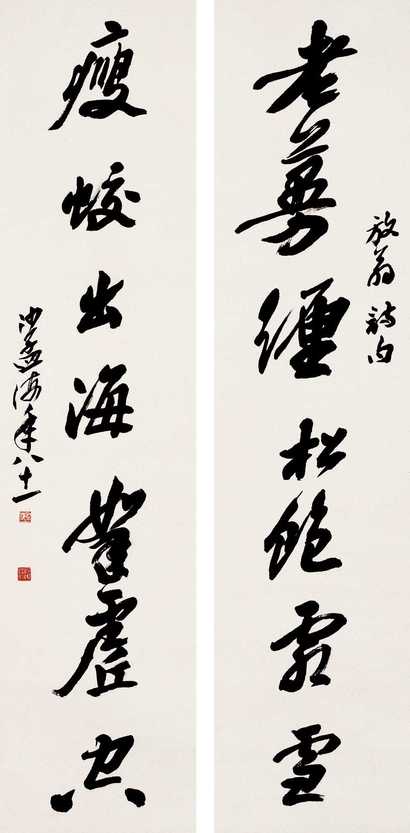 放翁詩句
老蔓纏松飽霜雪
瘦蛟出海挐虛空
沙孟海年八十一